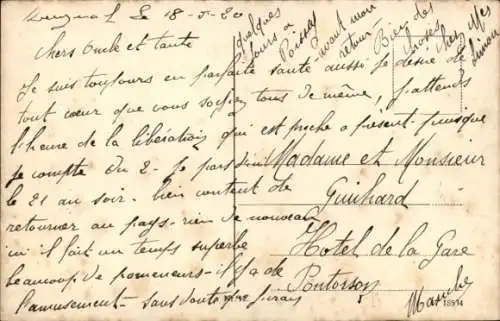 le 18-5-20
Chers Oncle et tante
Je suis toujours en parfaite santé aussi je désire de
tout cœur que vous soyez tous de même, j'attends
l'heure de la libération qui est proche a présent puisque
je compte en 2 - je pars
le 21 au soir - bien content de
retourner au pays - rien de nouveau
ici il fait un temps superbe
beaucoup de promeneurs - il y a de
l'amusement - sans doute
quelques
jours a
Poissy
avant mon
retour -
Bien des
choses
chez
Madame et Monsieur
Guichard
Hotel de la Gare
Pontorson
Manche